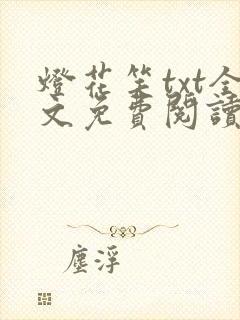 燈花笑txt全
文免費閱讀
塵浮